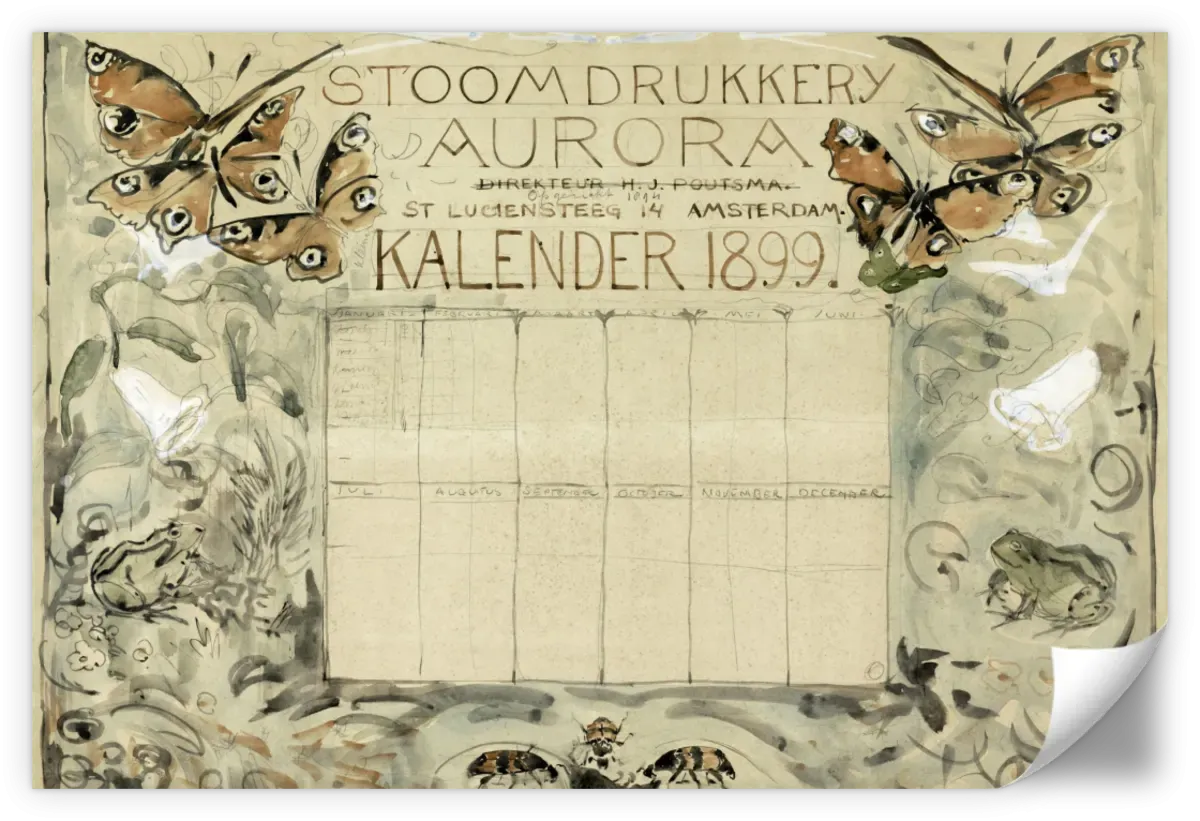 STOOMDRUKKERY
AURORA
DIREKTEUR H. J. POUTSMA.
Opgericht 1894
ST LUCIENSTEEG 14 AMSTERDAM.
KALENDER 1899.
JANUARI FEBRUARI MAART APRIL MEI JUNI
JULI AUGUTUS SEPTEMBER OCTOBER NOVEMBER DECEMBER